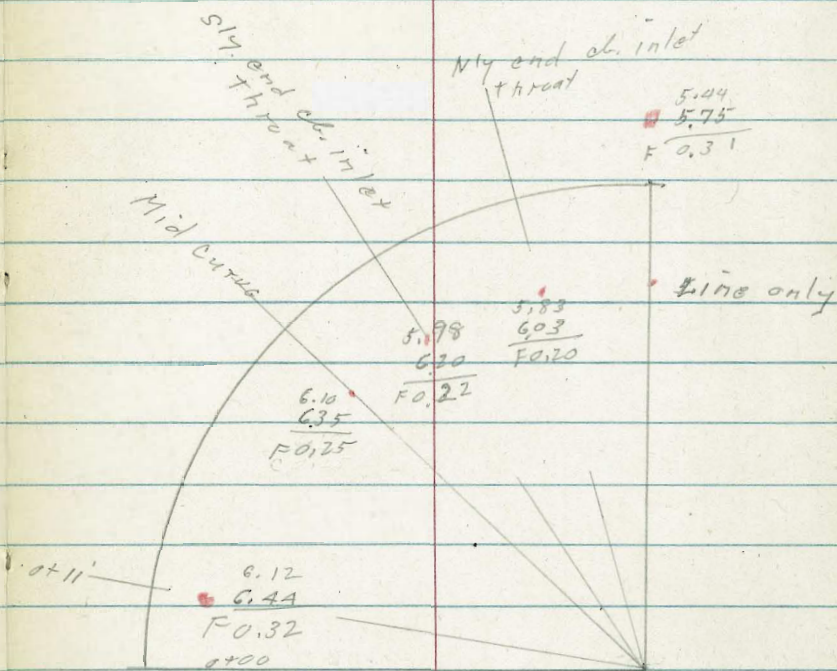 Sly. end cb. inlet
throat
Nly end cb. inlet
throat
5.44
5.75
F 0.31
Mid curve
Line only
5.83
6.03
F 0.20
5.98
6.20
F 0.22
6.10
6.35
F 0.25
0+11'
6.12
6.44
F 0.32
0+00